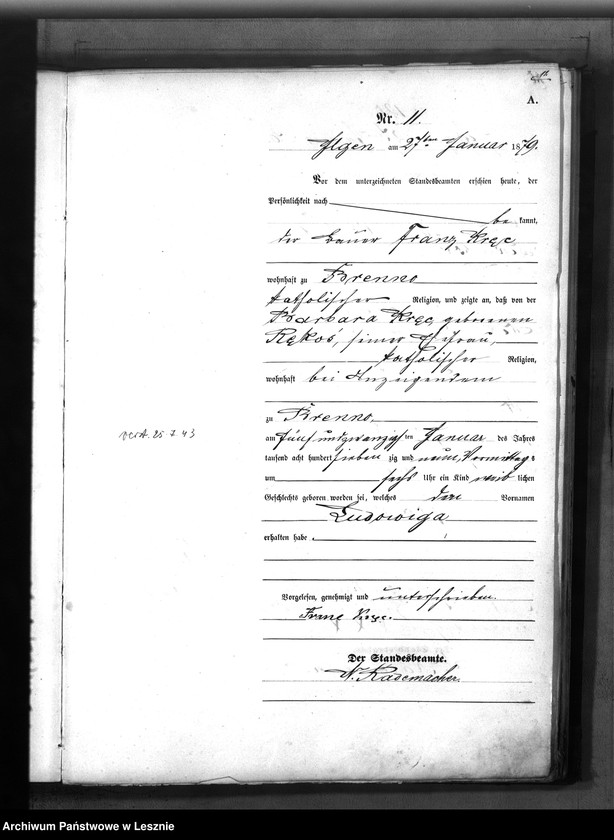 A.
Nr. 11.
Ilgen am 27ten Januar 1879.
Vor dem unterzeichneten Standesbeamten erschien heute, der
Persönlichkeit nach
be kannt,
der Bauer Franz Kręc
wohnhaft zu Brenno
katholischer Religion, und zeigte an, daß von der
Barbara Kręc geborenen
Rękoś, seiner Ehefrau,
katholischer Religion,
wohnhaft bei Anzeigendem
zu Brenno,
am fünfundzwanzigsten Januar des Jahres
tausend acht hundert sieben zig und neun, Vormittags
um sechs Uhr ein Kind weib lichen
Geschlechts geboren worden sei, welches den Vornamen
Ludowiga
erhalten habe.
Vorgelesen, genehmigt und unterschrieben.
Franc Kręc.
Der Standesbeamte.
N. Rademacher.
verst. 25 7 43
Archiwum Państwowe w Lesznie